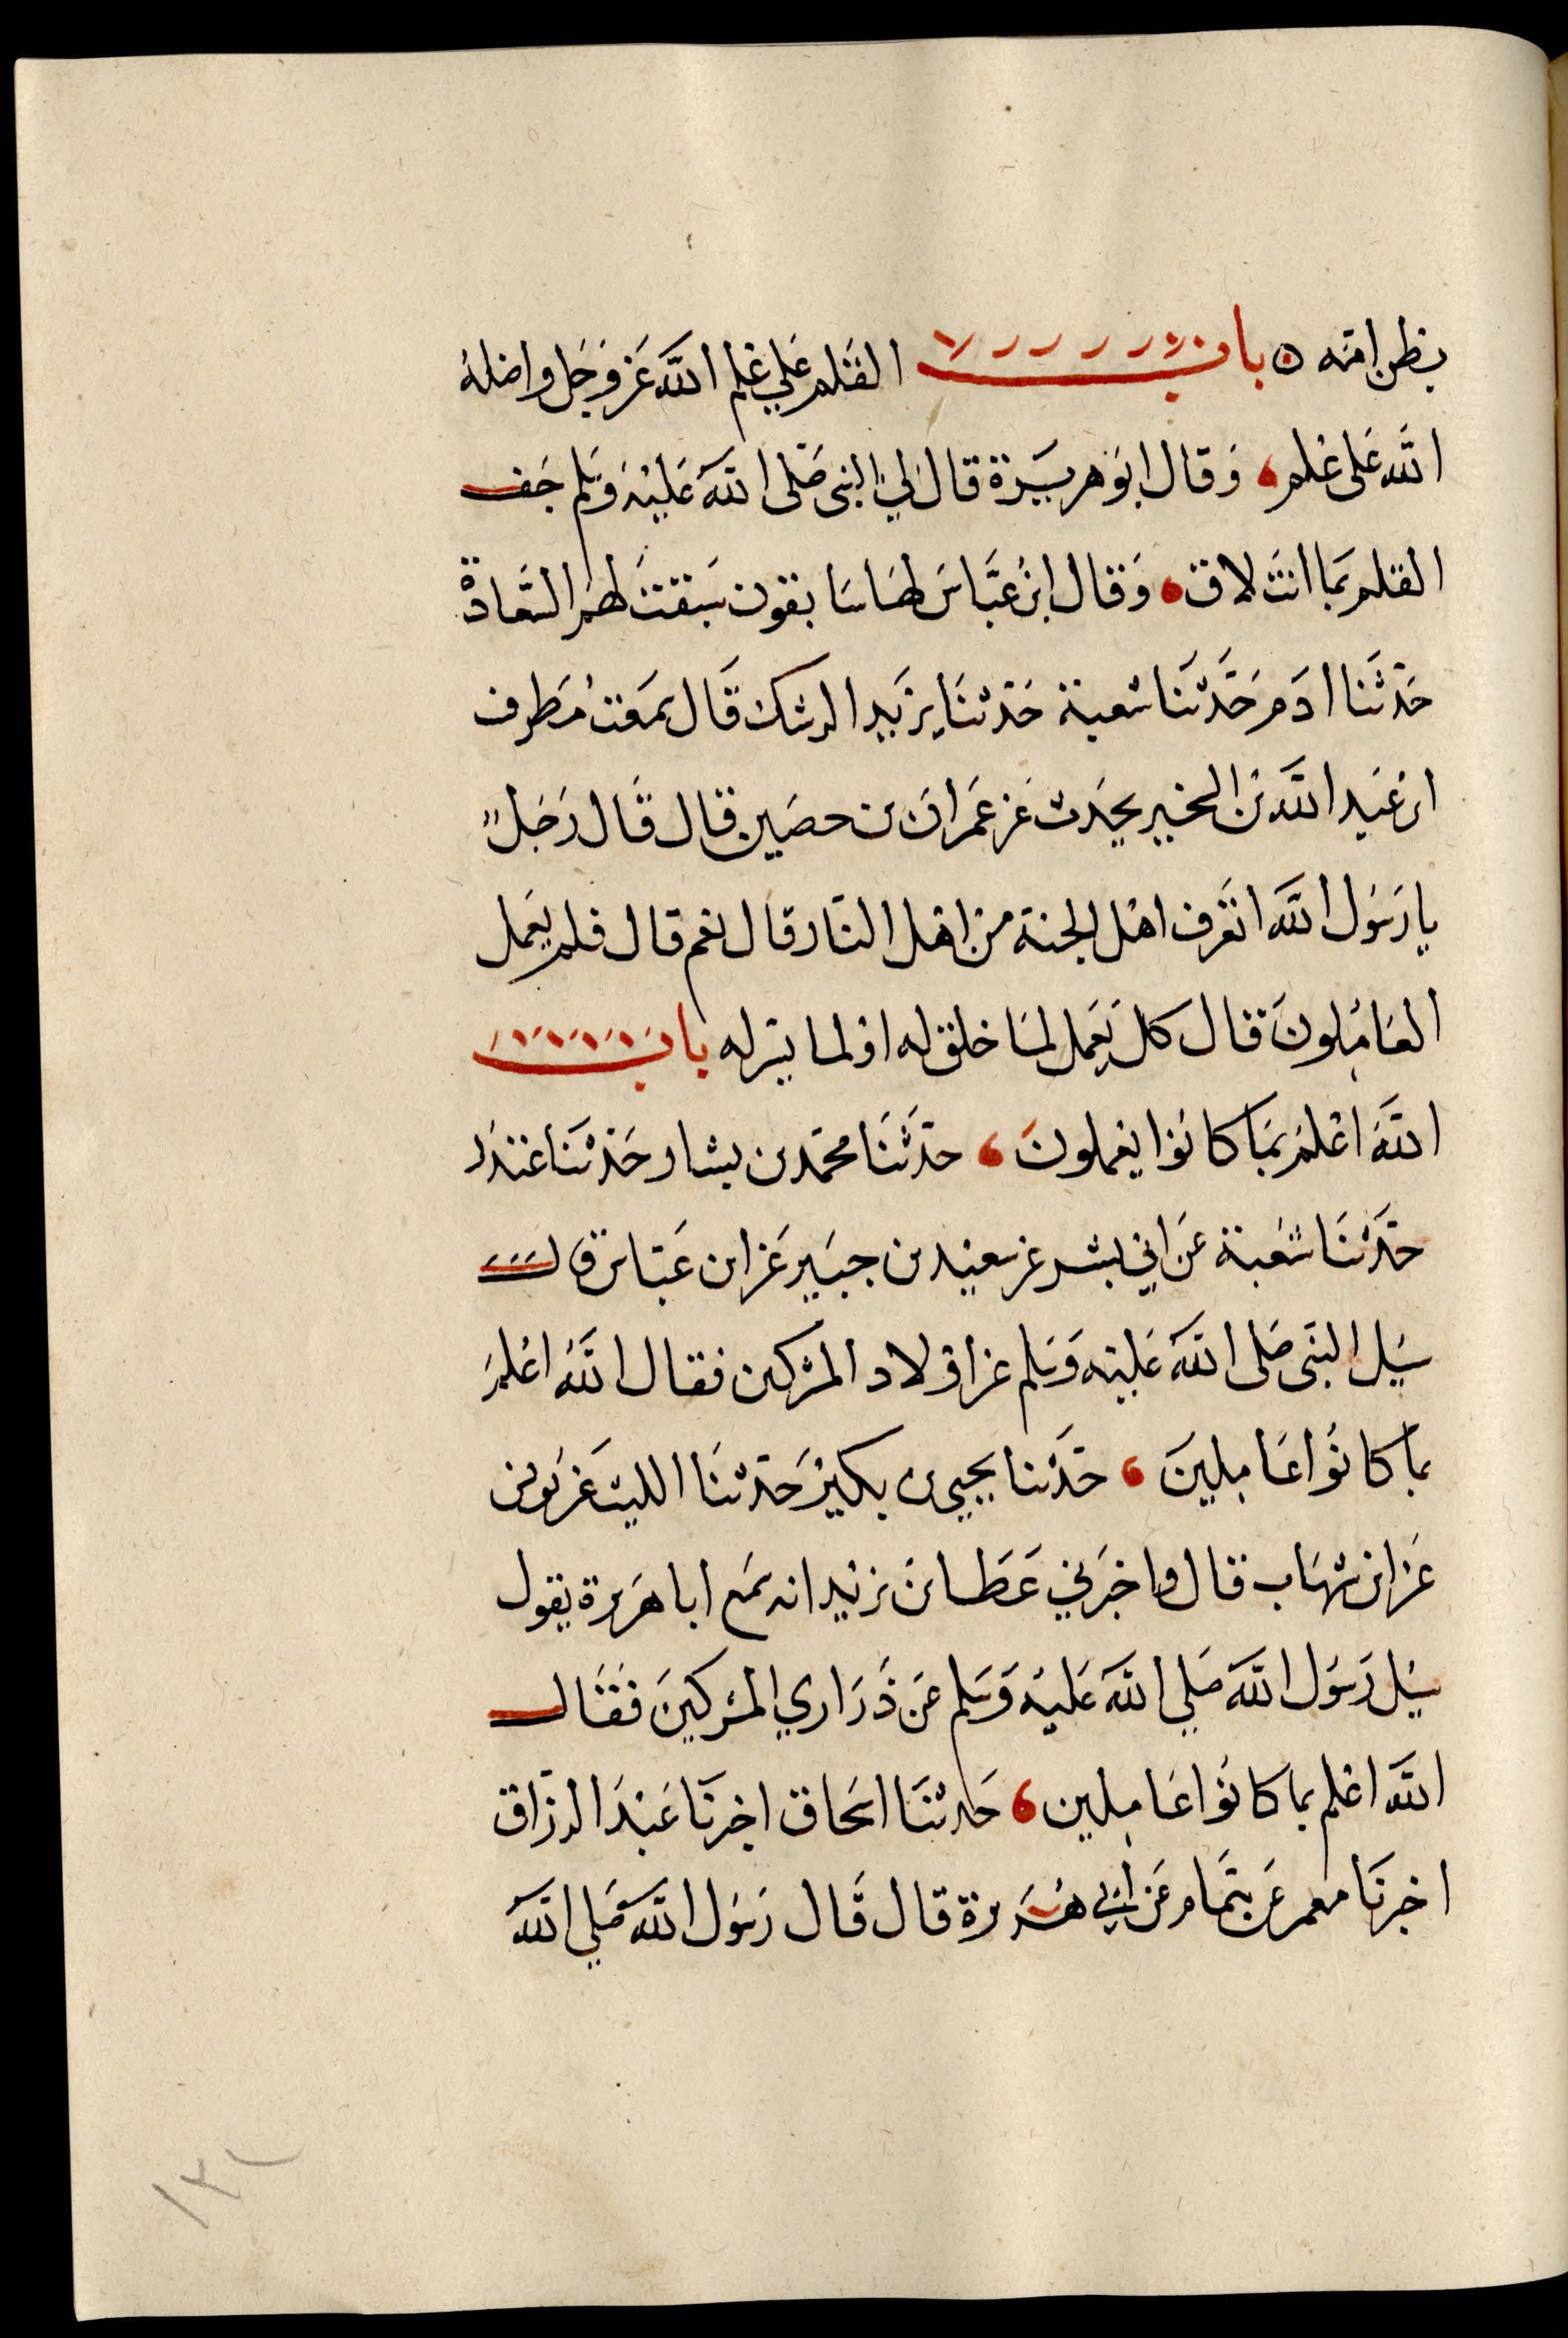 بطن امّه ٥ باب القلم علي علم الله عز وجل واضله
الله على علم وقال ابو هريرة قال لي النبي صلى الله عليه وسلم جف
القلم بما انت لاق وقال ابن عباس لها سابقون سبقت لهم السعادة
حدثنا ادم حدثنا شعبة حدثنا يزيد الرشك قال سمعت مطرف
ابن عبد الله بن الشخير يحدث عن عمران بن حصين قال قال رجل
يا رسول الله اتعرف اهل الجنة من اهل النار قال نعم قال فلم يعمل
العاملون قال كل يعمل لما خلق له او لما يسر له باب
الله اعلم بما كانوا يعملون حدثنا محمد بن بشار حدثنا غندر
حدثنا شعبة عن ابي بشر عن سعيد بن جبير عن ابن عباس قال
سيل النبي صلى الله عليه وسلم عن اولاد المشركين فقال الله اعلم
بما كانوا عاملين حدثنا يحيى بن بكير حدثنا الليث عن يونس
عن ابن شهاب قال واخبرني عطا بن يزيد انه سمع ابا هريرة يقول
سيل رسول الله صلي الله عليه وسلم عن ذراري المشركين فقال
الله اعلم بما كانوا عاملين حدثنا اسحاق اخبرنا عبد الرزاق
اخبرنا معمر عن همام عن ابي هريرة قال قال رسول الله صلي الله